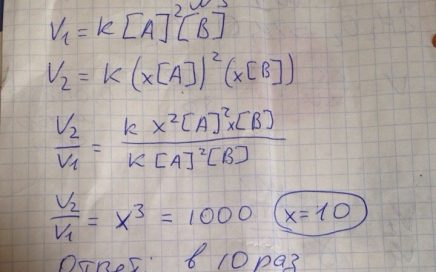 V₁ = K [A]² [B]
V₂ = K (x[A])² (x[B])
V₂/V₁ = K x² [A]² x [B] / K [A]² [B]
V₂/V₁ = x³ = 1000 x = 10
Ответ: в 10 раз